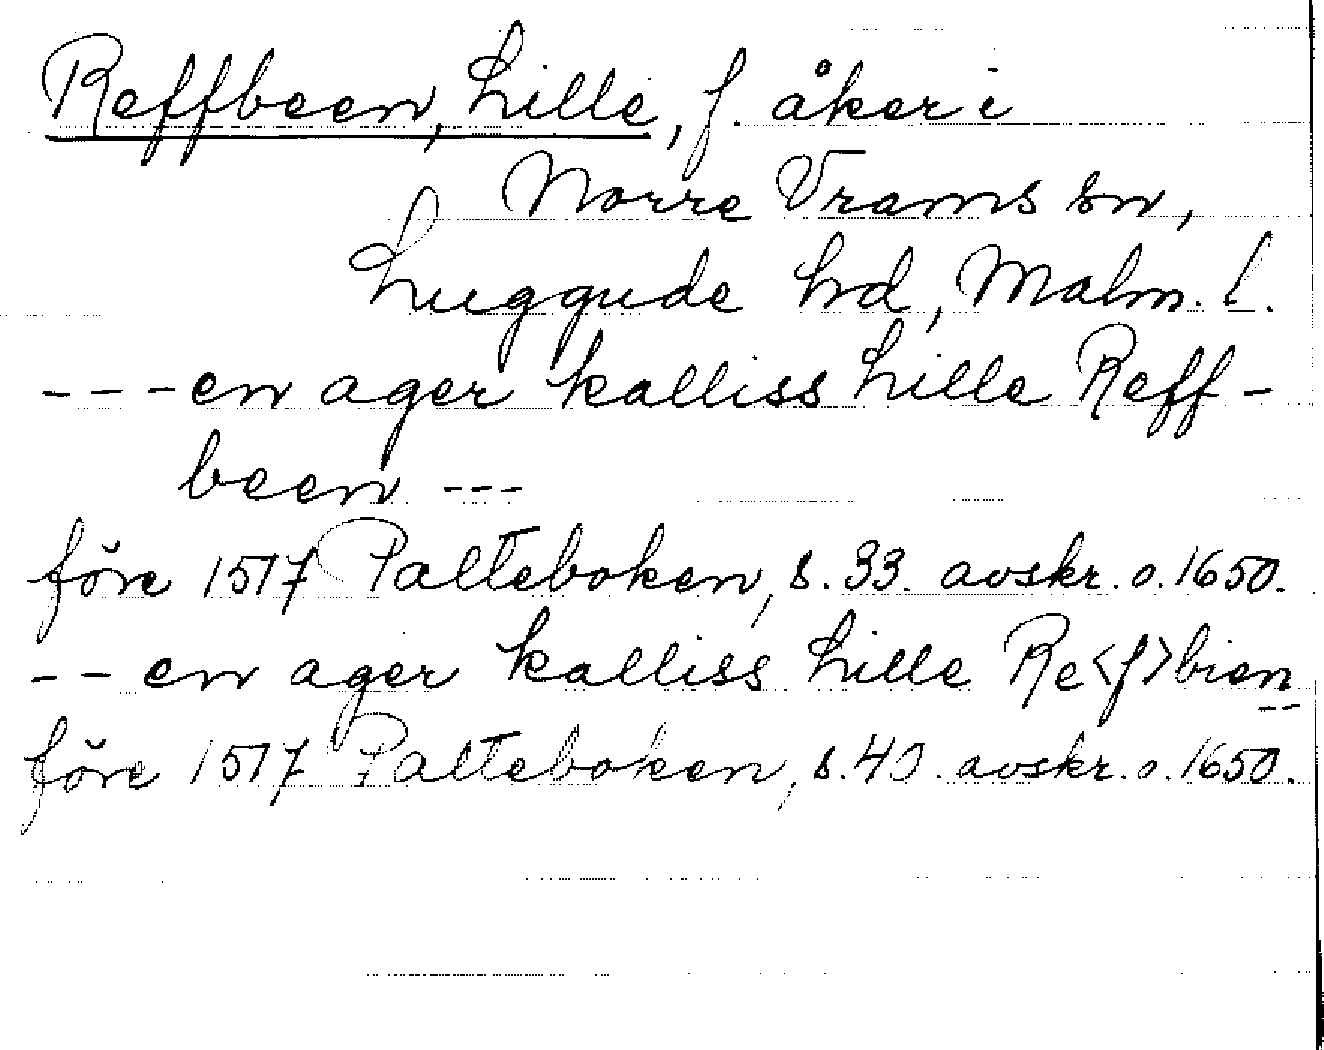 Reffbeen, Lille, f. åker i
Norre Vrams sn,
Luggude hd, Malm. l.
--- en ager kalliss Lille Reff-
been ---
före 1517 Palteboken, s. 33. avskr. o. 1650.
-- en ager kalliss Lille Re<f>bien --
före 1517 Palteboken, s. 40. avskr. o. 1650.